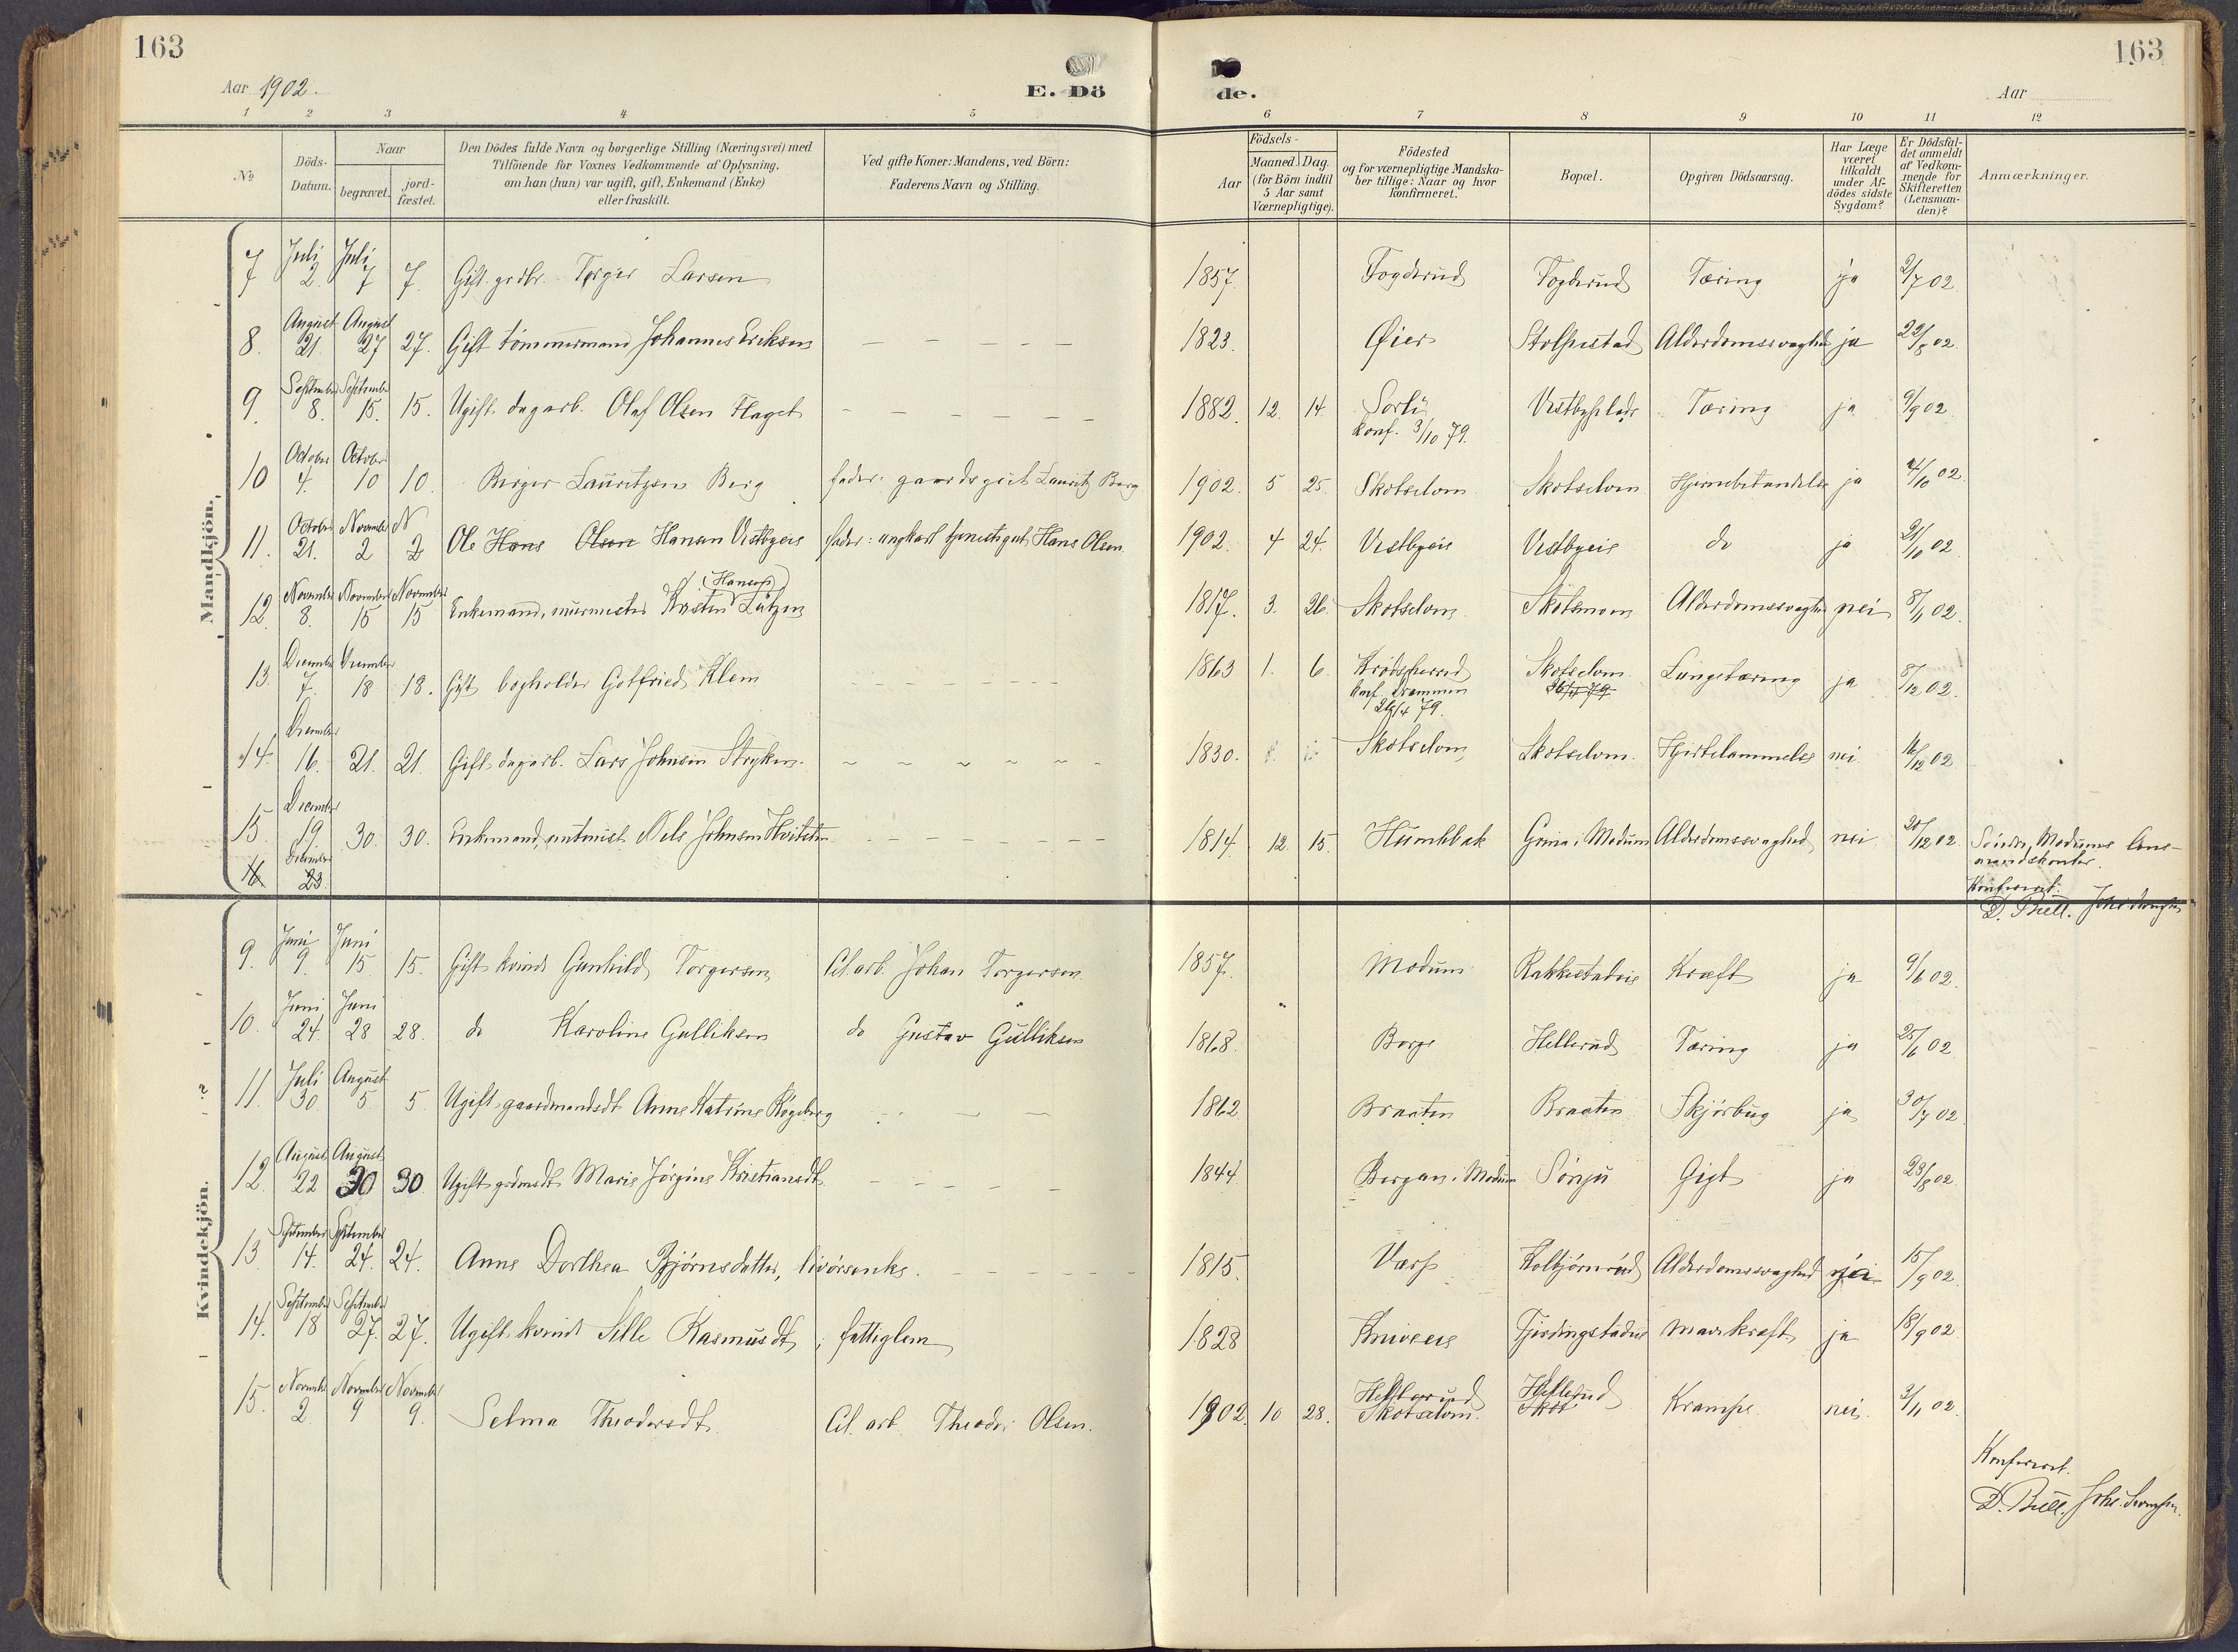 163
163
Aar 1902.
E. Dö
de.
Aar
1 2 3 4 5 6 7 8 9 10 11 12
No
Döds-Datum.
Naar
begravet.
jord-fæstet.
Den Dödes fulde Navn og borgerlige Stilling (Næringsvei) med
Tilföiende for Voxnes Vedkommende af Oplysning,
om han (hun) var ugift, gift, Enkemand (Enke)
eller fraskilt.
Ved gifte Koner: Mandens, ved Börn:
Faderens Navn og Stilling.
Födsels-
Aar
Maaned. Dag.
(for Börn indtil
5 Aar samt
Værnepligtige).
Födested
og for værnepligtige Mandska-
ber tillige: Naar og hvor
konfirmeret.
Bopæl.
Opgiven Dödsaarsag.
Har Læge
været
tilkaldt
under Af-
dödes sidste
Sygdom?
Er Dödsfal-
det anmeldt
af Vedkom-
mende for
Skifteretten
(Lensman-
den)?
Anmærkninger.
Mandkjön.
7 Juli 2. Juli 7 7. Gift grdbr. Torger Larsen 1857. Fogderud Fogderud Tæring ja 2/7 02
8. August 21. August 27 27. Gift tömmermand Johannes Eriksen 1823. Øier Stolpestad Alderdomssvaghed ja 22/8 02.
9. September 8. September 15. 15. Ugift dagarb. Olaf Olsen Flaget 1882. 12. 14. Sorli Vestbyplads Tæring ja 9/9 02.
Konf. 3/10 79.
10 October 4. October 10 10. Birger Lauritzen Berg fader: gaardsgut Lauritz Berg 1902. 5 25. Skotselven Skotselven Hjernebetændelse ja 4/10 02.
11. October 21. November 2 N 2 Ole Hans Olsen Hansen Vestbyeie fader: ungkarl tjenestegut Hans Olsen 1902. 4 24. Vestbyeie Vestbyeie do ja 21/10 02
(Hansen)
12. November 8. November 15 November 15 Enkemand, murmester Kristen Lützen 1817. 3. 26. Skotselven Alderdomssvaghed nei 8/11 02.
13. December 7. December 18 18. Gift bogholder Gotfried Klem 1863 1. 6. Krødsherred Skotselven Lungetæring ja 8/12 02.
Konf. Drammen 26/4 79
26/4 79.
14. December 16. 21. 21. Gift dagarb. Lars Johnsen Stryken 1830. Skotselven Skotselven. Hjertelammelse nei 16/12 02
15 December 19 30. 30. Enkemand, Nils Johnsen Hvitsten 1814 12. 15. Humblbæk Grina i Modum Alderdomssvaghed nei 20/12 02 Söndre Modums lens-
mandskontor.
16 December 23.
Konfereret:
D. Bull.
Kvindekjön.
9. Juni 9. Juni 15 15. Gift kvinde Gunhild Torgersen Cel.arb. Johan Torgersen 1857. Modum Kræft ja 9/6 02.
10. Juni 24. Juni 28 28. do Karoline Gulliksen do Gustav Gulliksen 1868. Borge Hellerud Tæring ja 25/6 02
11. Juli 30. August 5 5. Ugift gaardmandsdt. Anne Katrine Røgeberg 1862 Braaten Braaten Skjörbug ja 30/7 02
12 August 22 August 30 30 Ugift grdmsdt. Marie Jörgine Kristiansdt. 1844 Bergan i Modum Sönju Gigt ja 23/8 02
13 September 14. September 24. 24. Anne Dorthea Björnsdatter, livörsenke. 1815. Varp Kolbjörnrud Alderdomssvaghed ja 15/9 02.
14. September 18 September 27. 27. Ugift kvinde Sille Rasmusdt, fattiglem 1828 Kniveeie Fjerdingstadeie Mavekræft ja 18/9 02.
15. November 2. November 9 November 9. Selma Theodorsdt. Cel. arb. Theodor Olsen. 1902 10 28. Hellerud Hellerud Krampe nei 3/11 02.
Skotselven. Skot
Konfereret.
D. Bull.